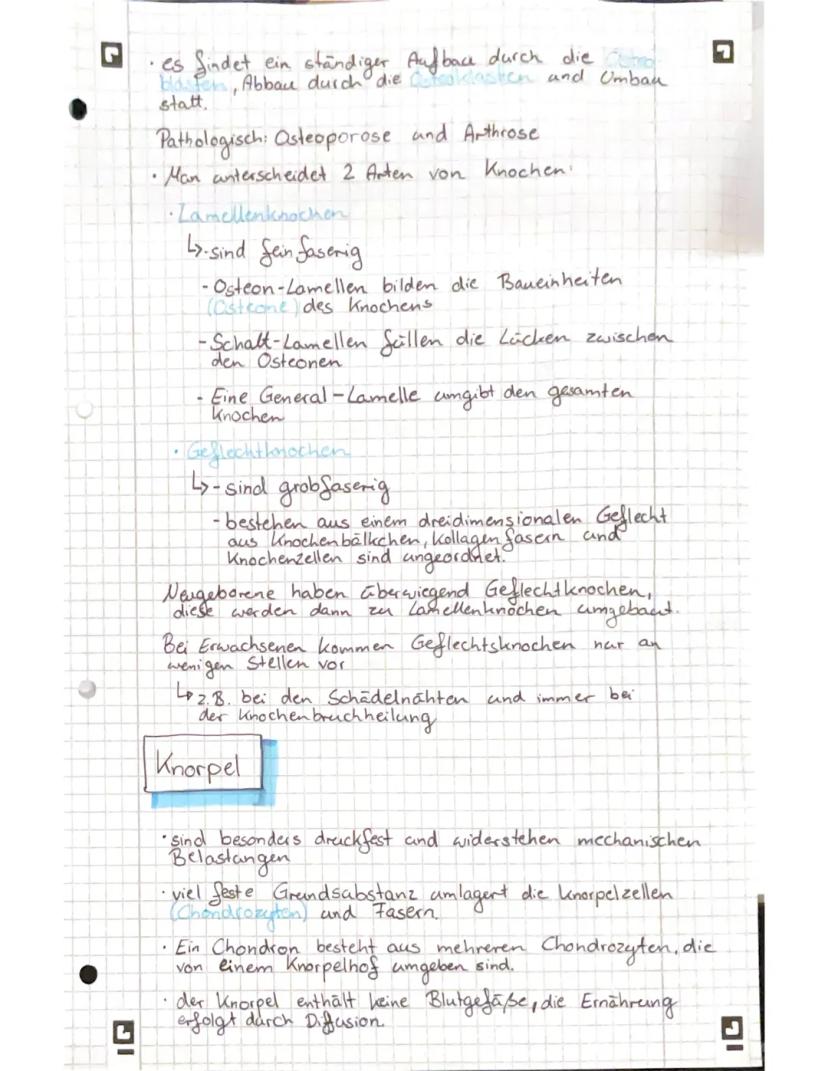 · es findet ein ständiger Aufbau durch die Osteo-
blasten, Abbau durch die Osteoklasten und Umbau
statt.
Pathologisch: Osteoporose und Arthrose
· Man unterscheidet 2 Arten von Knochen:
· Lamellenknochen
↳ - sind feinfaserig
- Osteon-Lamellen bilden die Baueinheiten
(Osteone) des Knochens
- Schalt-Lamellen füllen die Lücken zwischen
den Osteonen
- Eine General-Lamelle umgibt den gesamten
Knochen
· Geflechtknochen
↳ - sind grobfaserig
- bestehen aus einem dreidimensionalen Geflecht
aus Knochenbälkchen, Kollagenfasern und
Knochenzellen sind angeordnet.
Neugeborene haben überwiegend Geflechtknochen,
diese werden dann zu Lamellenknochen umgebaut.
Bei Erwachsenen kommen Geflechtsknochen nur an
wenigen Stellen vor
↳ z.B. bei den Schädelnähten und immer bei
der Knochenbruchheilung
Knorpel
· sind besonders druckfest und widerstehen mechanischen
Belastungen
· viel feste Grundsubstanz umlagert die Knorpelzellen
(Chondrozyten) und Fasern.
· Ein Chondron besteht aus mehreren Chondrozyten, die
von einem Knorpelhof umgeben sind.
· der Knorpel enthält keine Blutgefäße, die Ernährung
erfolgt durch Diffusion.